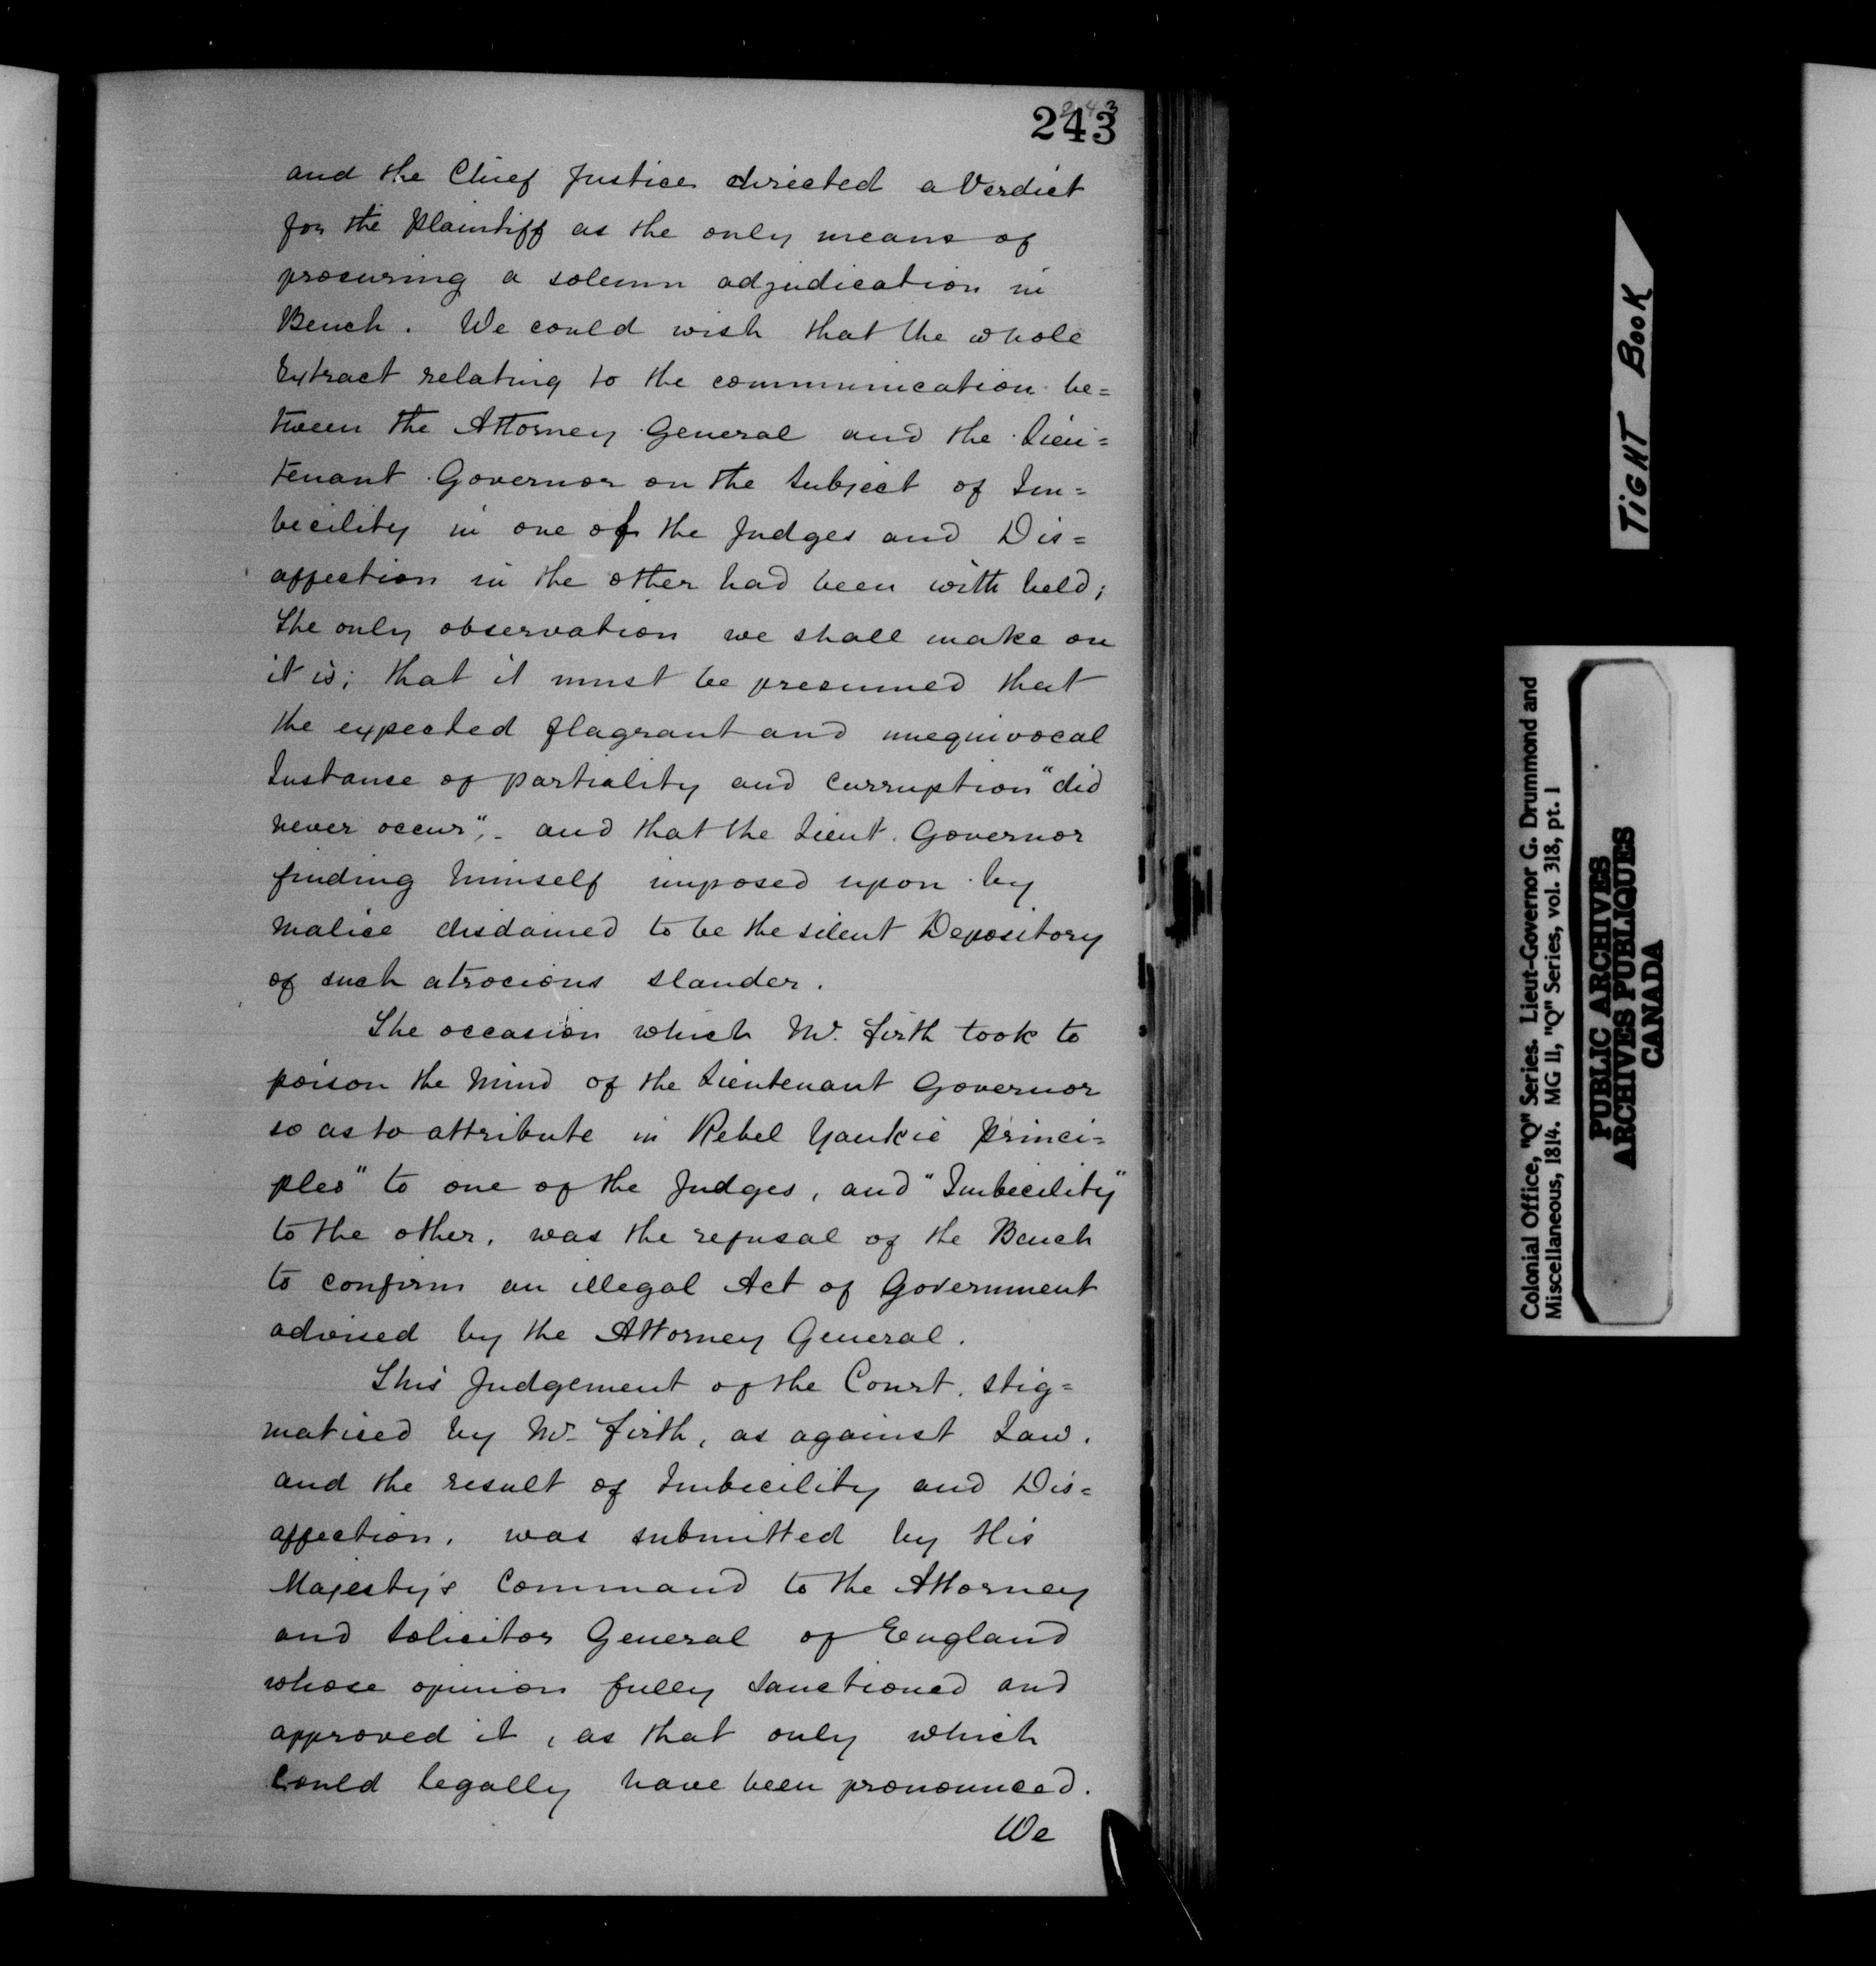 243
243
and the Chief Justice directed a Verdict
for the Plaintiff as the only means of
procuring a solemn adjudication in
Bench. We could wish that the whole
Extract relating to the communication be=
tween the Attorney General and the Lieu=
tenant Governor on the Subject of Im=
becility in one of the Judges and Dis=
affection in the other had been with held;
The only observation we shall make on
it is; that it must be presumed that
the expected flagrant and unequivocal
Instance of partiality and Curruption "did
never occur", - and that the Lieut. Governor
finding himself imposed upon by
Malice disdained to be the silent Depository
of such atrocious slander.
The occasion which Mr. Firth took to
poison the Mind of the Lieutenant Governor
so as to attribute in Rebel Yankie Princi=
ples" to one of the Judges, and "Imbecility"
to the other, was the refusal of the Bench
to confirm an illegal Act of Government
advised by the Attorney General.
This Judgement of the Court, stig=
matised by Mr. Firth, as against Law,
and the result of Imbecility and Dis=
affection, was submitted by His
Majesty's Command to the Attorney
and Solicitor General of England
whose opinion fully Sanctioned and
approved it, as that only which
Could legally have been pronounced.
We
TIGHT BOOK
Colonial Office, "Q" Series. Lieut-Governor G. Drummond and
Miscellaneous, 1814. MG 11, "Q" Series, vol. 318, pt. 1
PUBLIC ARCHIVES
ARCHIVES PUBLIQUES
CANADA